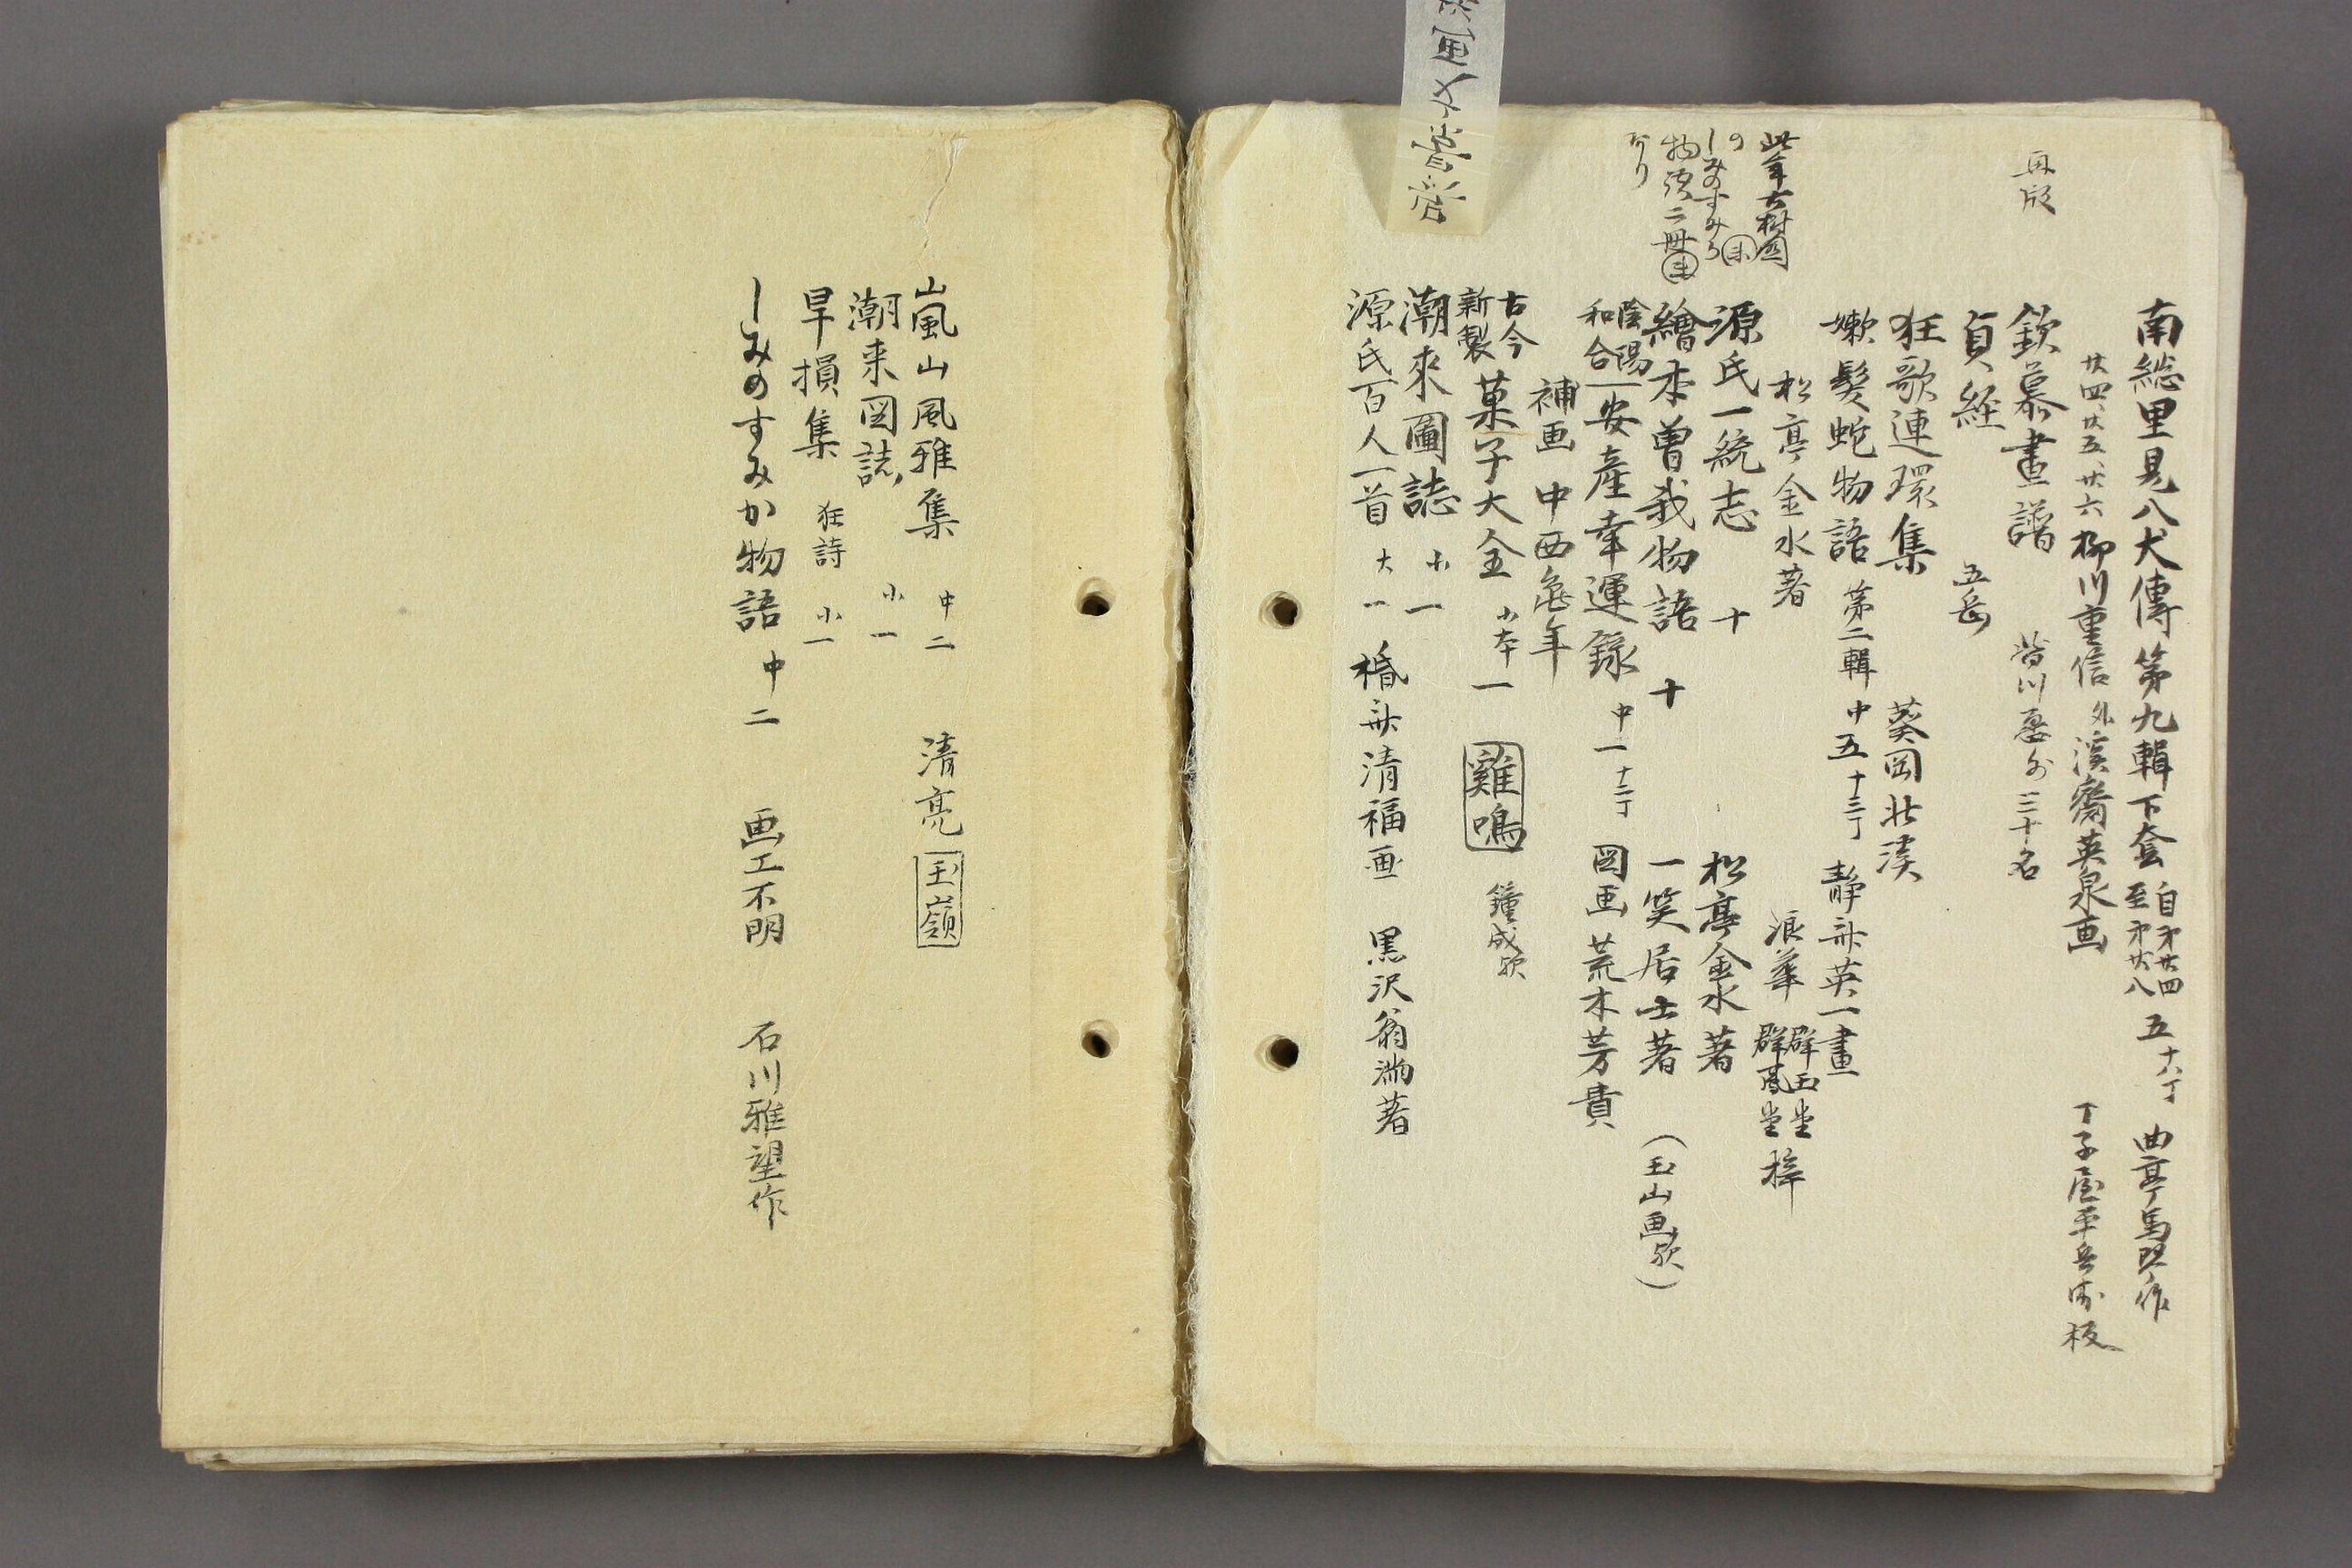 南総里見八犬傳第九輯下套 自才廿四 至才廿八 五 十八丁 曲亭馬琴作
廿四、廿五、廿六 柳川重信 外 渓齋英泉画 丁子屋平兵衛板
再版
欽慕畫譜
貞経 五岳
狂歌連環集 葵岡北渓
嫩髪蛇物語 第二輯 中 五 十三丁 静斎英一畫
松亭金水著 浪華 群玉堂 群鳳堂 梓
此年六樹園
の
しみのすみか
物語二冊
なり
源氏一統志 十 松亭金水著
繪本曽我物語 十 一笑居士著 (玉山画歟)
陰陽和合 安産幸運録 中一 十二丁 図画 荒木芳貴
補画 中西亀年
古今新製 菓子大全 小本 一 雞鳴 鐘成歟
潮來圖誌 小 一
源氏百人一首 大 一 棔斎清福画 黒沢翁満著
嵐山風雅集 中 二 清亮 玉嶺
潮来図誌 小 一
旱損集 狂詩 小 一
しみのすみか物語 中 二 画工不明 石川雅望作